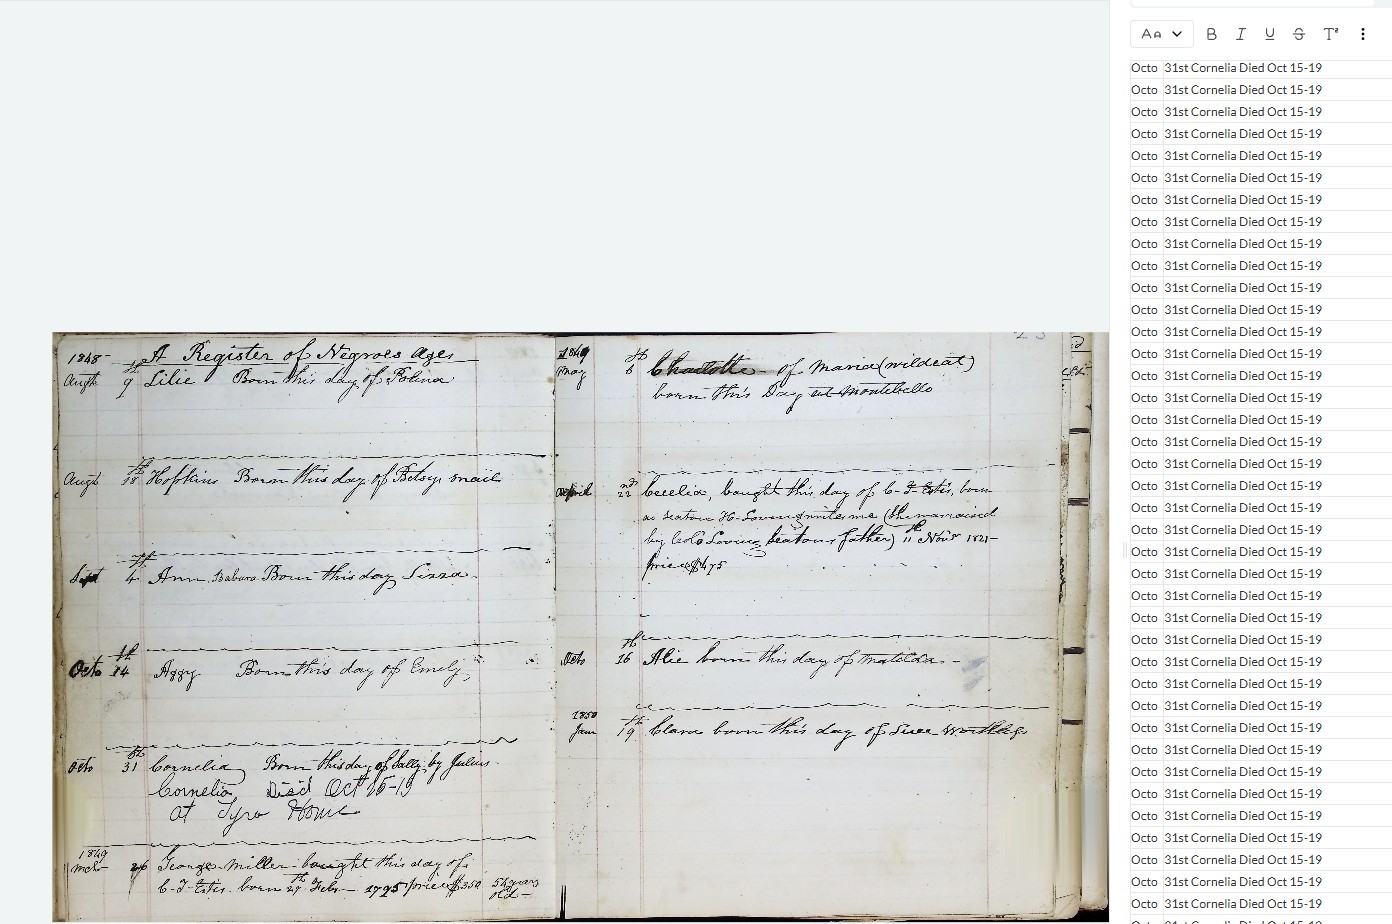 1848 A Register of Negroes Ages
Augt 9th Lilie Born this day of Polina
Augt 18th Hopkins Born this day of Betsy
Sept 4th Ann Babara Born this day
Octo 14th Aggy Born this day of Emily
Octo 31st Cornelia Born this day of Sally by Julius
Cornelia Died Oct 15-19
at Tyro Home
1849
Mch 26 George Miller bought this day of
C. F. Estis born 27th Feby 1795 price $350 54 years
old
1849
May 6th Charlotte - of Maria (wildcat)
born this Day at Montibello
April 22nd Cecelia, bought this day of C. F. Estis, born
as Seaton H. Loving writes me (she was raised
by Colo Loving Seatons father) 11th Novr 1821-
price $475
Octo 16th Alie born this day of Matilda -
1850
Jany 19th Clara born this day of
Aa B I U S T
Octo 31st Cornelia Died Oct 15-19
Octo 31st Cornelia Died Oct 15-19
Octo 31st Cornelia Died Oct 15-19
Octo 31st Cornelia Died Oct 15-19
Octo 31st Cornelia Died Oct 15-19
Octo 31st Cornelia Died Oct 15-19
Octo 31st Cornelia Died Oct 15-19
Octo 31st Cornelia Died Oct 15-19
Octo 31st Cornelia Died Oct 15-19
Octo 31st Cornelia Died Oct 15-19
Octo 31st Cornelia Died Oct 15-19
Octo 31st Cornelia Died Oct 15-19
Octo 31st Cornelia Died Oct 15-19
Octo 31st Cornelia Died Oct 15-19
Octo 31st Cornelia Died Oct 15-19
Octo 31st Cornelia Died Oct 15-19
Octo 31st Cornelia Died Oct 15-19
Octo 31st Cornelia Died Oct 15-19
Octo 31st Cornelia Died Oct 15-19
Octo 31st Cornelia Died Oct 15-19
Octo 31st Cornelia Died Oct 15-19
Octo 31st Cornelia Died Oct 15-19
Octo 31st Cornelia Died Oct 15-19
Octo 31st Cornelia Died Oct 15-19
Octo 31st Cornelia Died Oct 15-19
Octo 31st Cornelia Died Oct 15-19
Octo 31st Cornelia Died Oct 15-19
Octo 31st Cornelia Died Oct 15-19
Octo 31st Cornelia Died Oct 15-19
Octo 31st Cornelia Died Oct 15-19
Octo 31st Cornelia Died Oct 15-19
Octo 31st Cornelia Died Oct 15-19
Octo 31st Cornelia Died Oct 15-19
Octo 31st Cornelia Died Oct 15-19
Octo 31st Cornelia Died Oct 15-19
Octo 31st Cornelia Died Oct 15-19
Octo 31st Cornelia Died Oct 15-19
Octo 31st Cornelia Died Oct 15-19
Octo 31st Cornelia Died Oct 15-19